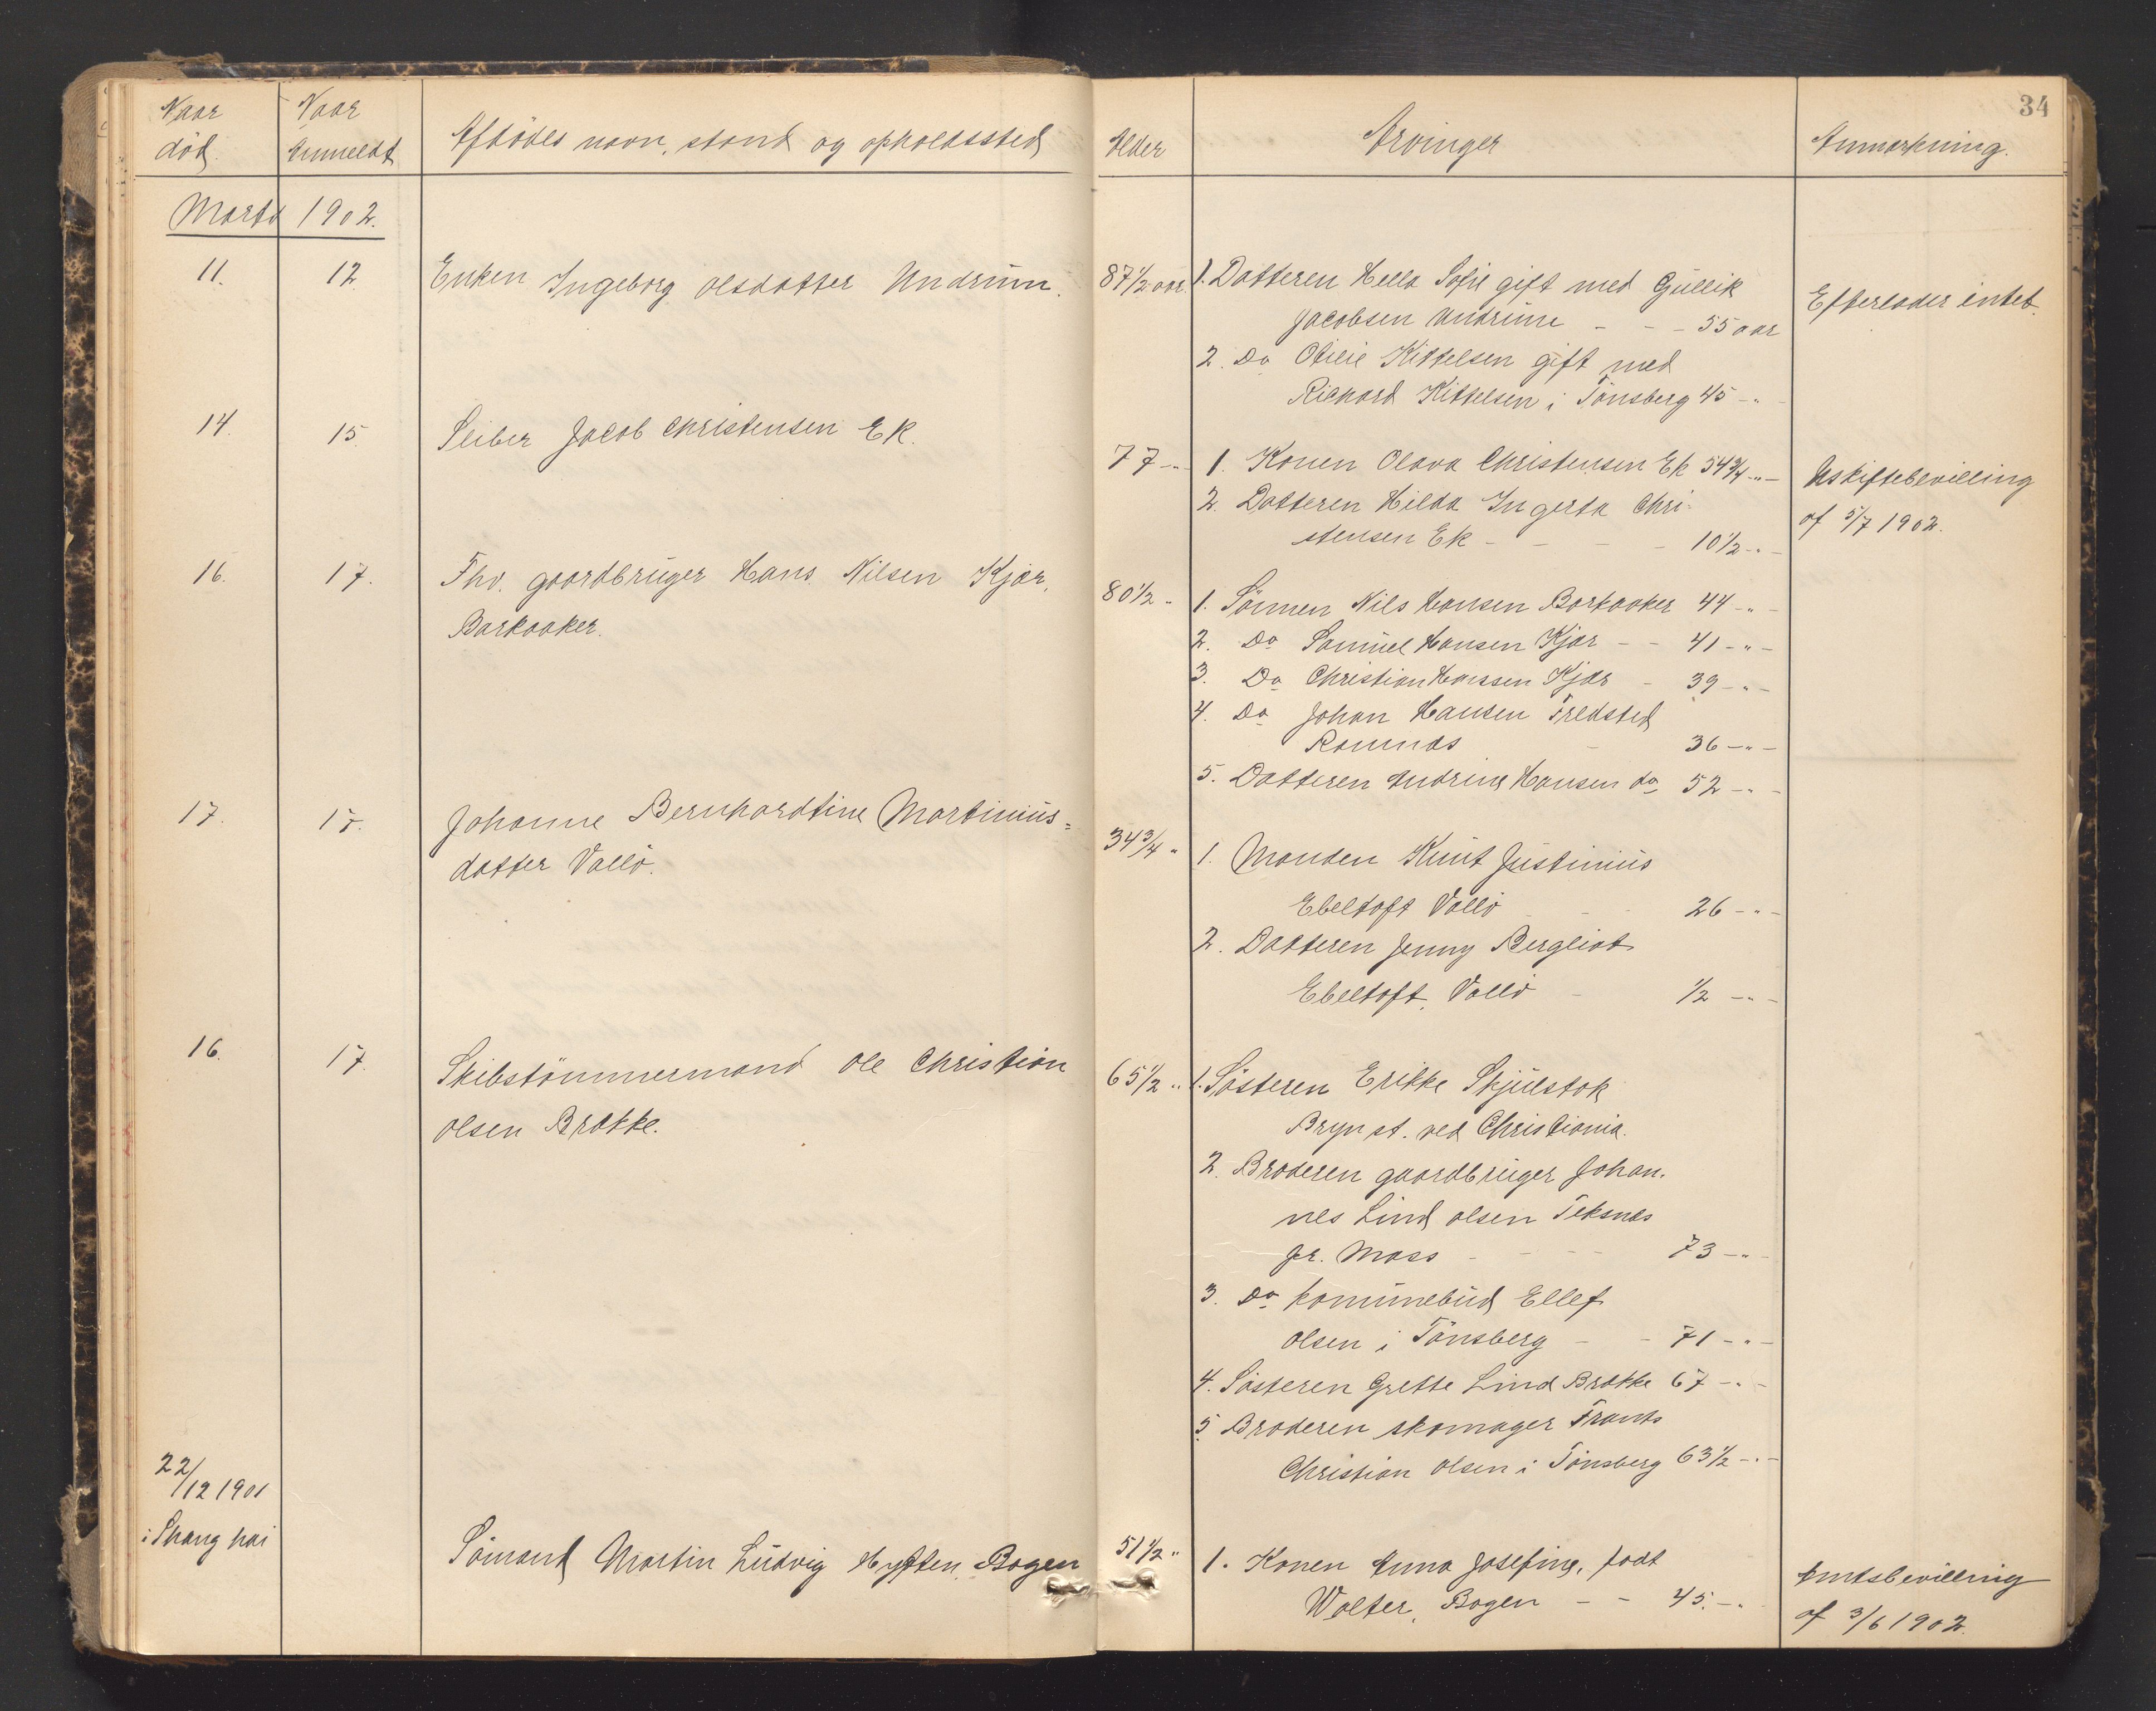 34
Naar død. Naar Anmeldt Afdødes navn, stand og opholdssted Alder Arvinger Anmærkning.
Marts 1902.
11. 12. Enken Ingeborg Olsdatter Undrum. 87 1/2 aar. 1. Datteren Hella Sofie gift med Gullik
Jacobsen Undrum - - - 55 aar
Efterlader intet.
2. Do Otilie Kittelsen gift med
Richard Kittelsen i Tönsberg 45 - " -
14. 15. Sliber Jacob Christensen Ek. 77 - " - 1. Konen Olava Christensen Ek 54 3/4 - " -
Uskiftebevilling
2. Datteren Hilda Ingerta Chri-
stensen Ek - - - - 10 1/2 - " -
af 5/7 1902.
16. 17. Fhv. gaardbruger Hans Nilsen Kjær,
Barkaaker.
80 1/2 " 1. Sönnen Nils Hansen Barkaaker 44 - " -
2. Do Samuel Hansen Kjær - - 41 - " -
3. Do Christian Hansen Kjær - 39 - " -
4. Do Johan Hansen Fredsted
Ramnes - 36 - " -
5. Datteren Andrine Hansen do 52 - " -
17. 17. Johanne Bernhardtine Martinius=
datter Vallö.
34 3/4 " 1. Manden Knut Justinius
Ebeltoft Vallö - - - 26 - " -
2. Datteren Jenny Bergliot
Ebeltoft, Vallö - 1/2 - " -
16. 17. Skibstömmermand Ole Christian
Olsen Brække.
65 1/2 " 1. Sösteren Erikke Skjulstok
Bryn st. ved Christiania.
2. Broderen gaardbruger Johan-
nes Lind Olsen Teksnæs
pr. Moss - - - - 73 - " -
3. Do komunebud Ellef
Olsen i Tönsberg - - 71 - " -
4. Sösteren Grette Lind Brække 67 - " -
5. Broderen skomager Frants
Christian Olsen i Tönsberg 63 1/2 - " -
22/12 1901
i Shang hai
Sömand Martin Ludvig Hytten, Bogen 51 1/2 " 1. Konen Anna Josefine, födt
Wolter, Bogen - - 45. - " -
Amtsbevilling
af 3/6 1902.